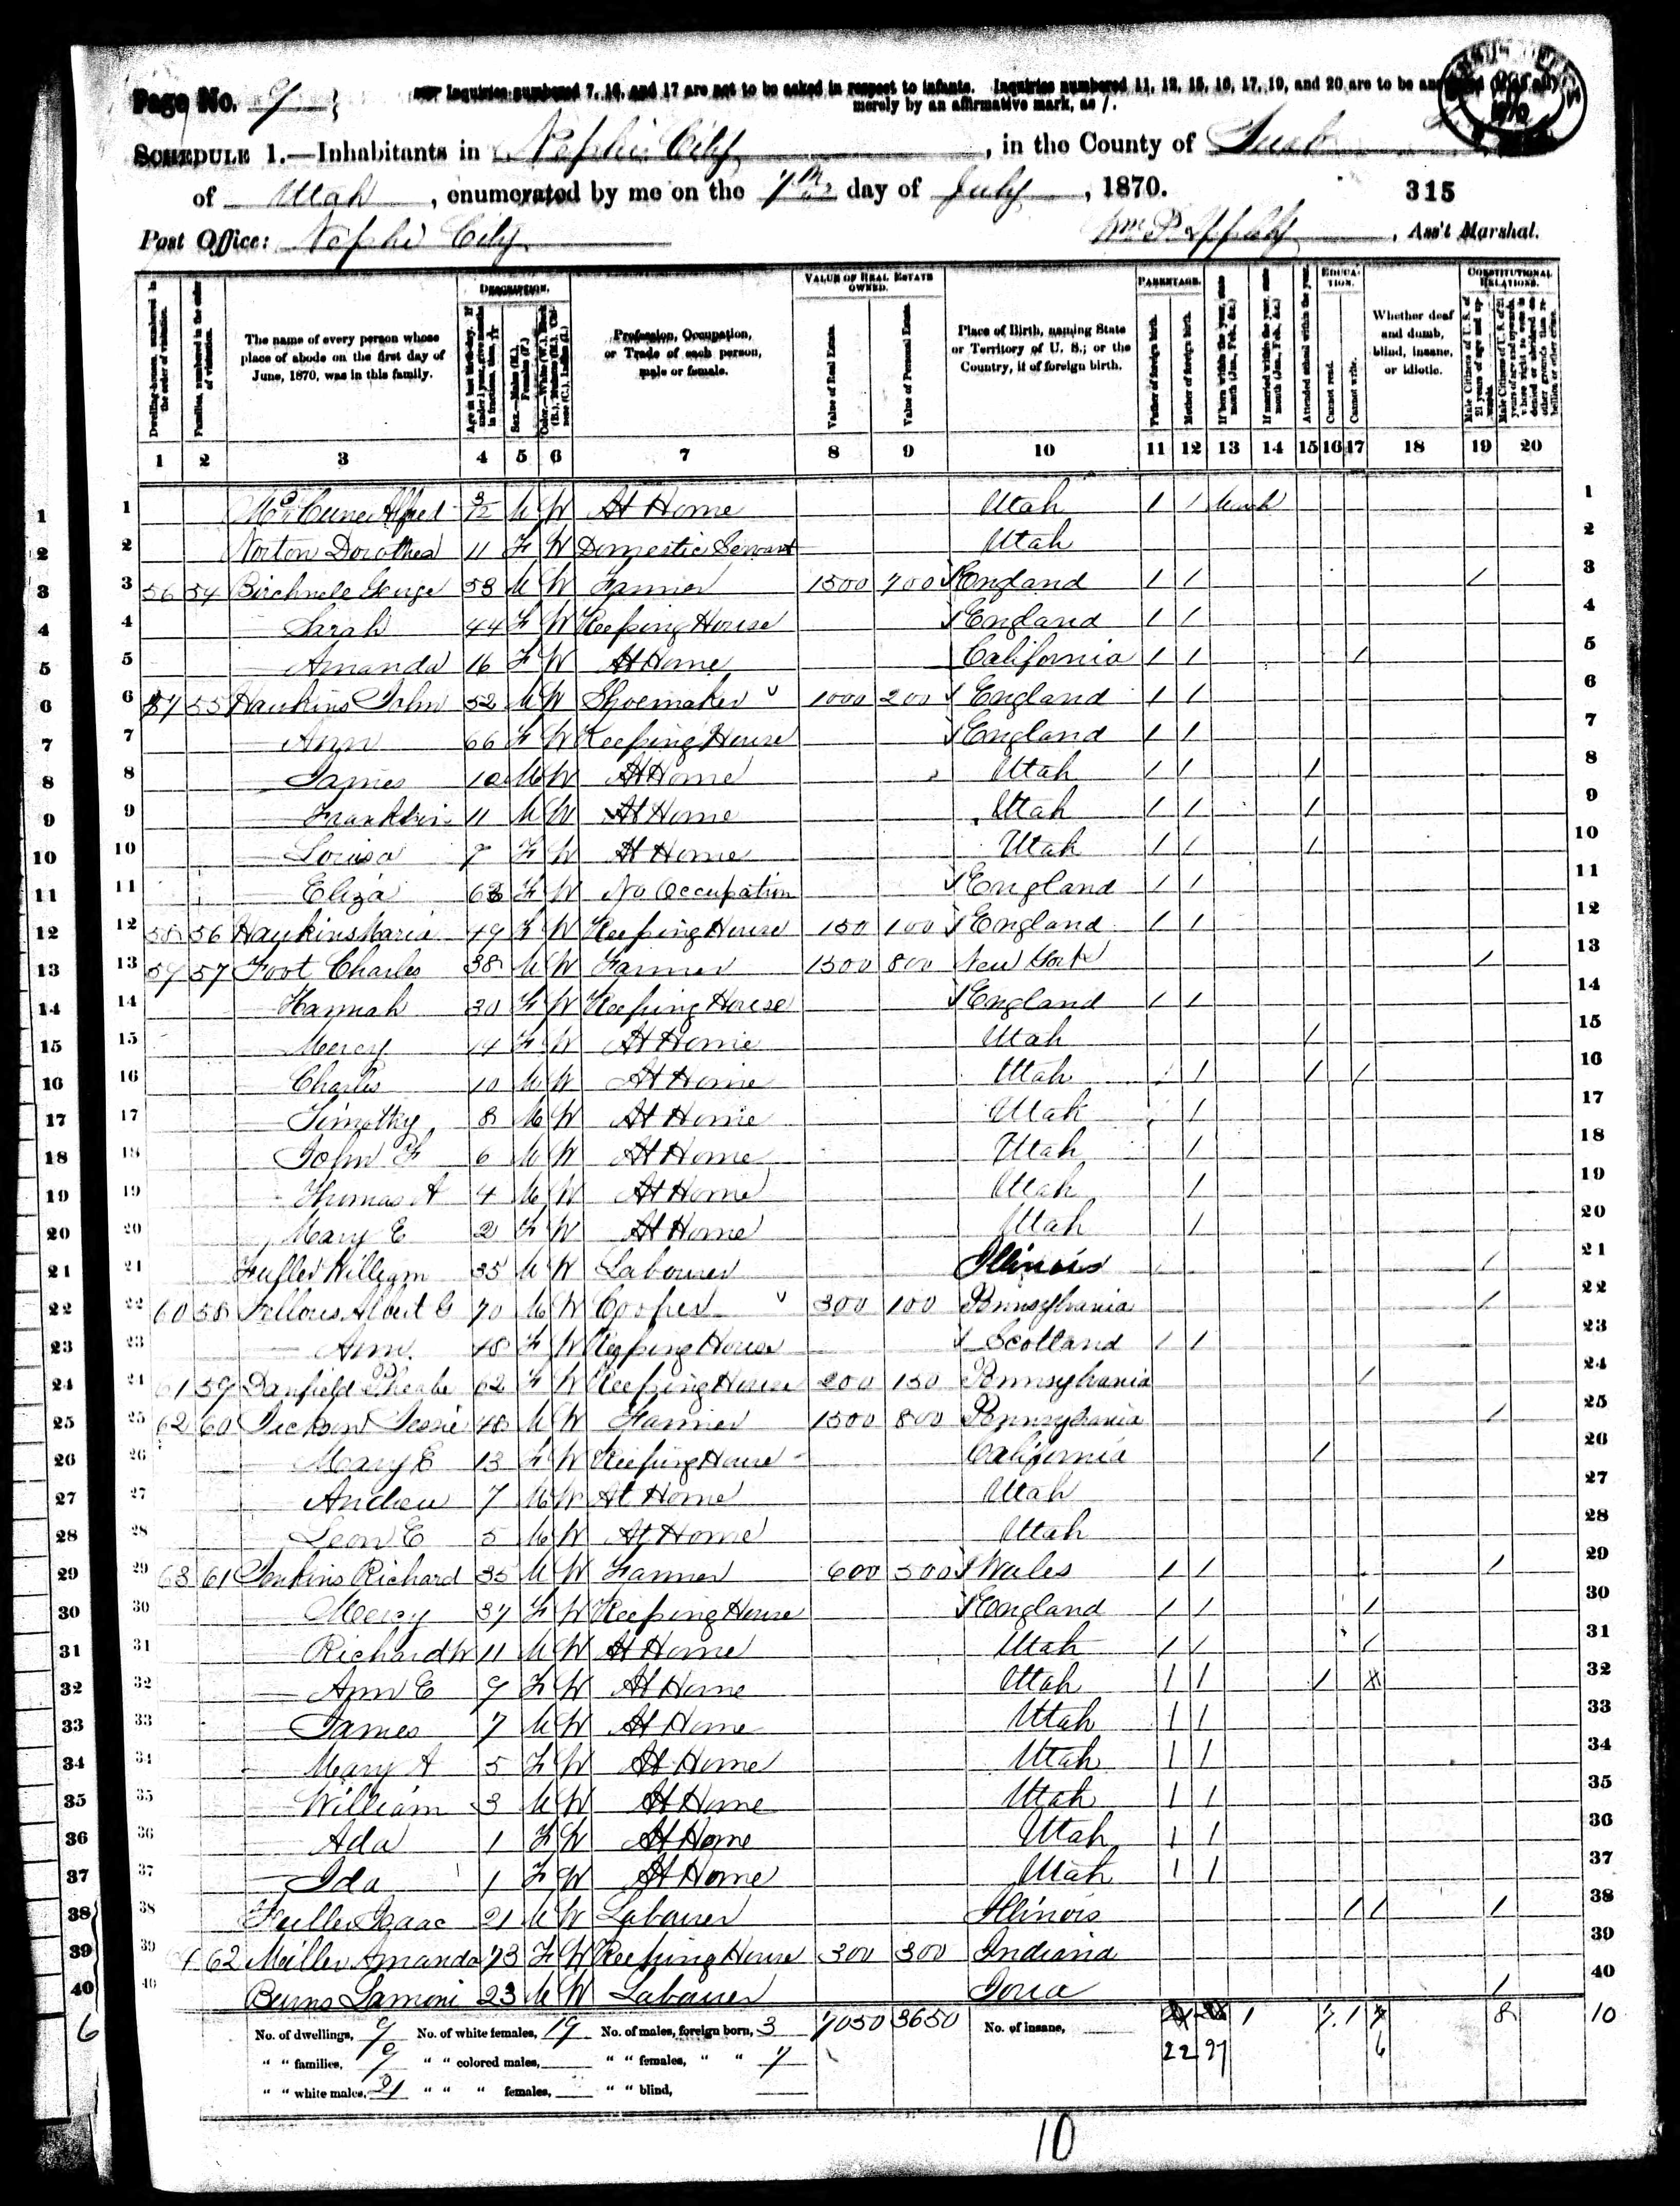 Page No. 9
Inquiries numbered 7, 16, and 17 are not to be asked in respect to infants. Inquiries numbered 11, 12, 15, 16, 17, 19, and 20 are to be
merely by an affirmative mark, as /.
SCHEDULE 1.—Inhabitants in Nephi City, in the County of Juab
of Utah, enumerated by me on the 7th day of July, 1870.
315
Post Office: Nephi City
Ass't Marshal.
Dwelling-houses, numbered in the order of visitation.
Families, numbered in the order of visitation.
The name of every person whose place of abode on the first day of June, 1870, was in this family.
DESCRIPTION.
Profession, Occupation, or Trade of each person, male or female.
VALUE OF REAL ESTATE OWNED.
Value of Real Estate.
Value of Personal Estate.
Place of Birth, naming State or Territory of U. S.; or the Country, if of foreign birth.
PARENTAGE.
Father of foreign birth.
Mother of foreign birth.
If born within the year, state month (Jan., Feb., &c.)
If married within the year, state month (Jan., Feb., &c.)
Attended school within the year.
EDUCATION.
Cannot read.
Cannot write.
Whether deaf and dumb, blind, insane, or idiotic.
CONSTITUTIONAL RELATIONS.
1 2 3 4 5 6 7 8 9 10 11 12 13 14 15 16 17 18 19 20
1 McCune Alfred 3/12 M W At Home Utah / / March 1
2 Norton Dorothea 11 F W Domestic Servant Utah 2
3 56 54 George 53 M W Farmer 1500 700 England / / / 3
4 Sarah 44 F W Keeping House England / / 4
5 Amanda 16 F W At Home California / / / 5
6 57 55 Hawkins John 52 M W Shoemaker 1000 200 England / / 6
7 Ann 66 F W Keeping House England / / 7
8 James M W At Home Utah / / / 8
9 Franklin 11 M W At Home Utah / / / 9
10 Louisa 7 F W At Home Utah / / / 10
11 Eliza F W No Occupation England / / 11
12 58 56 Hawkins Maria 49 F W Keeping House 150 100 England / / 12
13 59 57 Foot Charles 38 M W Farmer 1500 800 New York / 13
14 Hannah 30 F W Keeping House England / / 14
15 Mercy 14 F W At Home Utah / 15
16 Charles 10 M W At Home Utah / / / 16
17 Timothy 8 M W At Home Utah / 17
18 John F 6 M W At Home Utah / 18
19 Thomas A 4 M W At Home Utah / 19
20 Mary E 2 F W At Home Utah / 20
21 Fuller William 35 M W Labourer Illinois / 21
22 60 58 Albert G 70 M W Cooper 300 100 Pennsylvania / 22
23 Ann F W Keeping House Scotland / / 23
24 61 59 Phoebe 62 F W Keeping House 200 150 Pennsylvania / 24
25 62 60 48 M W Farmer 1500 800 Pennsylvania / 25
26 Mary E 13 F W Keeping House California / 26
27 Andrew 7 M W At Home Utah 27
28 Leon E 5 M W At Home Utah 28
29 63 61 Jenkins Richard 35 M W Farmer 600 500 Wales / / / 29
30 Mercy 37 F W Keeping House England / / / 30
31 Richard W 11 M W At Home Utah / / / 31
32 Ann E 9 F W At Home Utah / / / X 32
33 James 7 M W At Home Utah / / 33
34 Mary A 5 F W At Home Utah / / 34
35 William 3 M W At Home Utah / / 35
36 Ada 1 F W At Home Utah / / 36
37 Ida 1 F W At Home Utah / / 37
38 Fuller Isaac 21 M W Labourer Illinois / / / 38
39 62 Miller Amanda 73 F W Keeping House 300 300 Indiana 39
40 Burns Lamoni 23 M W Labourer Iowa / 40
No. of dwellings, 9 No. of white females, 19 No. of males, foreign born, 3 7050 3650 No. of insane, 1 7 1 8 10
" " families, 9 " " colored males, " " females, " " 7 22 27 6
" " white males, 21 " " " females, " " blind,
10
6